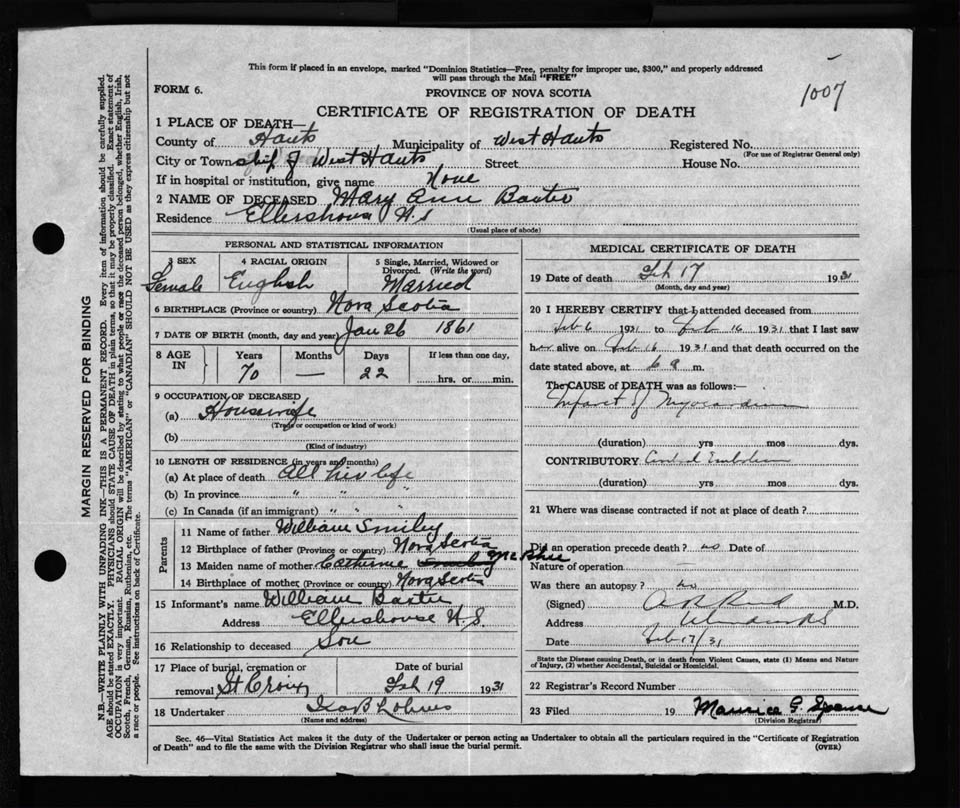 This form if placed in an envelope, marked "Dominion Statistics—Free, penalty for improper use, $300," and properly addressed
will pass through the Mail "FREE"
1007
FORM 6.
PROVINCE OF NOVA SCOTIA
CERTIFICATE OF REGISTRATION OF DEATH
1 PLACE OF DEATH—
County of Hants Municipality of West Hants Registered No.
(For use of Registrar General only)
City or Township of West Hants Street House No.
If in hospital or institution, give name None
2 NAME OF DECEASED Mary Ann Baxter
Residence Ellershouse N.S
(Usual place of abode)
PERSONAL AND STATISTICAL INFORMATION
3 SEX 4 RACIAL ORIGIN 5 Single, Married, Widowed or
Divorced. (Write the word)
Female English Married
6 BIRTHPLACE (Province or country) Nova Scotia
7 DATE OF BIRTH (month, day and year) Jan 26 1861
8 AGE IN Years Months Days If less than one day,
70 — 22 hrs. or min.
9 OCCUPATION OF DECEASED
(a) Housewife
(Trade or occupation or kind of work)
(b)
(Kind of industry)
10 LENGTH OF RESIDENCE (in years and months)
(a) At place of death All her life
(b) In province " " "
(c) In Canada (if an immigrant) " " "
Parents
11 Name of father William Smiley
12 Birthplace of father (Province or country) Nova Scotia
13 Maiden name of mother Catherine McPhee
14 Birthplace of mother (Province or country) Nova Scotia
15 Informant's name William Baxter
Address Ellershouse N.S.
16 Relationship to deceased Son
17 Place of burial, cremation or Date of burial
removal St Croix Feb 19 1931
18 Undertaker
(Name and address)
MEDICAL CERTIFICATE OF DEATH
19 Date of death Feb 17 1931
(Month, day and year)
20 I HEREBY CERTIFY that I attended deceased from
Feb 6 1931 to Feb 16 1931 that I last saw
her alive on Feb 16 1931 and that death occurred on the
date stated above, at 6 a m.
The CAUSE of DEATH was as follows:—
Infarct of Myocardium
(duration) yrs mos dys.
CONTRIBUTORY Embolism
(duration) yrs mos dys.
21 Where was disease contracted if not at place of death?
Did an operation precede death? no Date of
Nature of operation —
Was there an autopsy? no
(Signed) M.D.
Address Windsor NS
Date Feb 17/31
State the Disease causing Death, or in death from Violent Causes, state (1) Means and Nature
of Injury, (2) whether Accidental, Suicidal or Homicidal.
22 Registrar's Record Number
23 Filed 19 Maurice G. Spence
(Division Registrar)
Sec. 46—Vital Statistics Act makes it the duty of the Undertaker or person acting as Undertaker to obtain all the particulars required in the "Certificate of Registration
of Death" and to file the same with the Division Registrar who shall issue the burial permit.
(OVER)
MARGIN RESERVED FOR BINDING
N.B.—WRITE PLAINLY WITH UNFADING INK—THIS IS A PERMANENT RECORD. Every item of information should be carefully supplied.
AGE should be stated EXACTLY. PHYSICIANS should STATE CAUSE OF DEATH in plain terms, so that it may be properly classified. Exact statement of
OCCUPATION is very important. RACIAL ORIGIN will be described by stating to what people or race the deceased person belonged, whether English, Irish,
Scotch, French, German, Russian, Ruthenian, etc. The terms "AMERICAN" or "CANADIAN" SHOULD NOT BE USED as they express citizenship but not
a race or people. See instructions on back of Certificate.